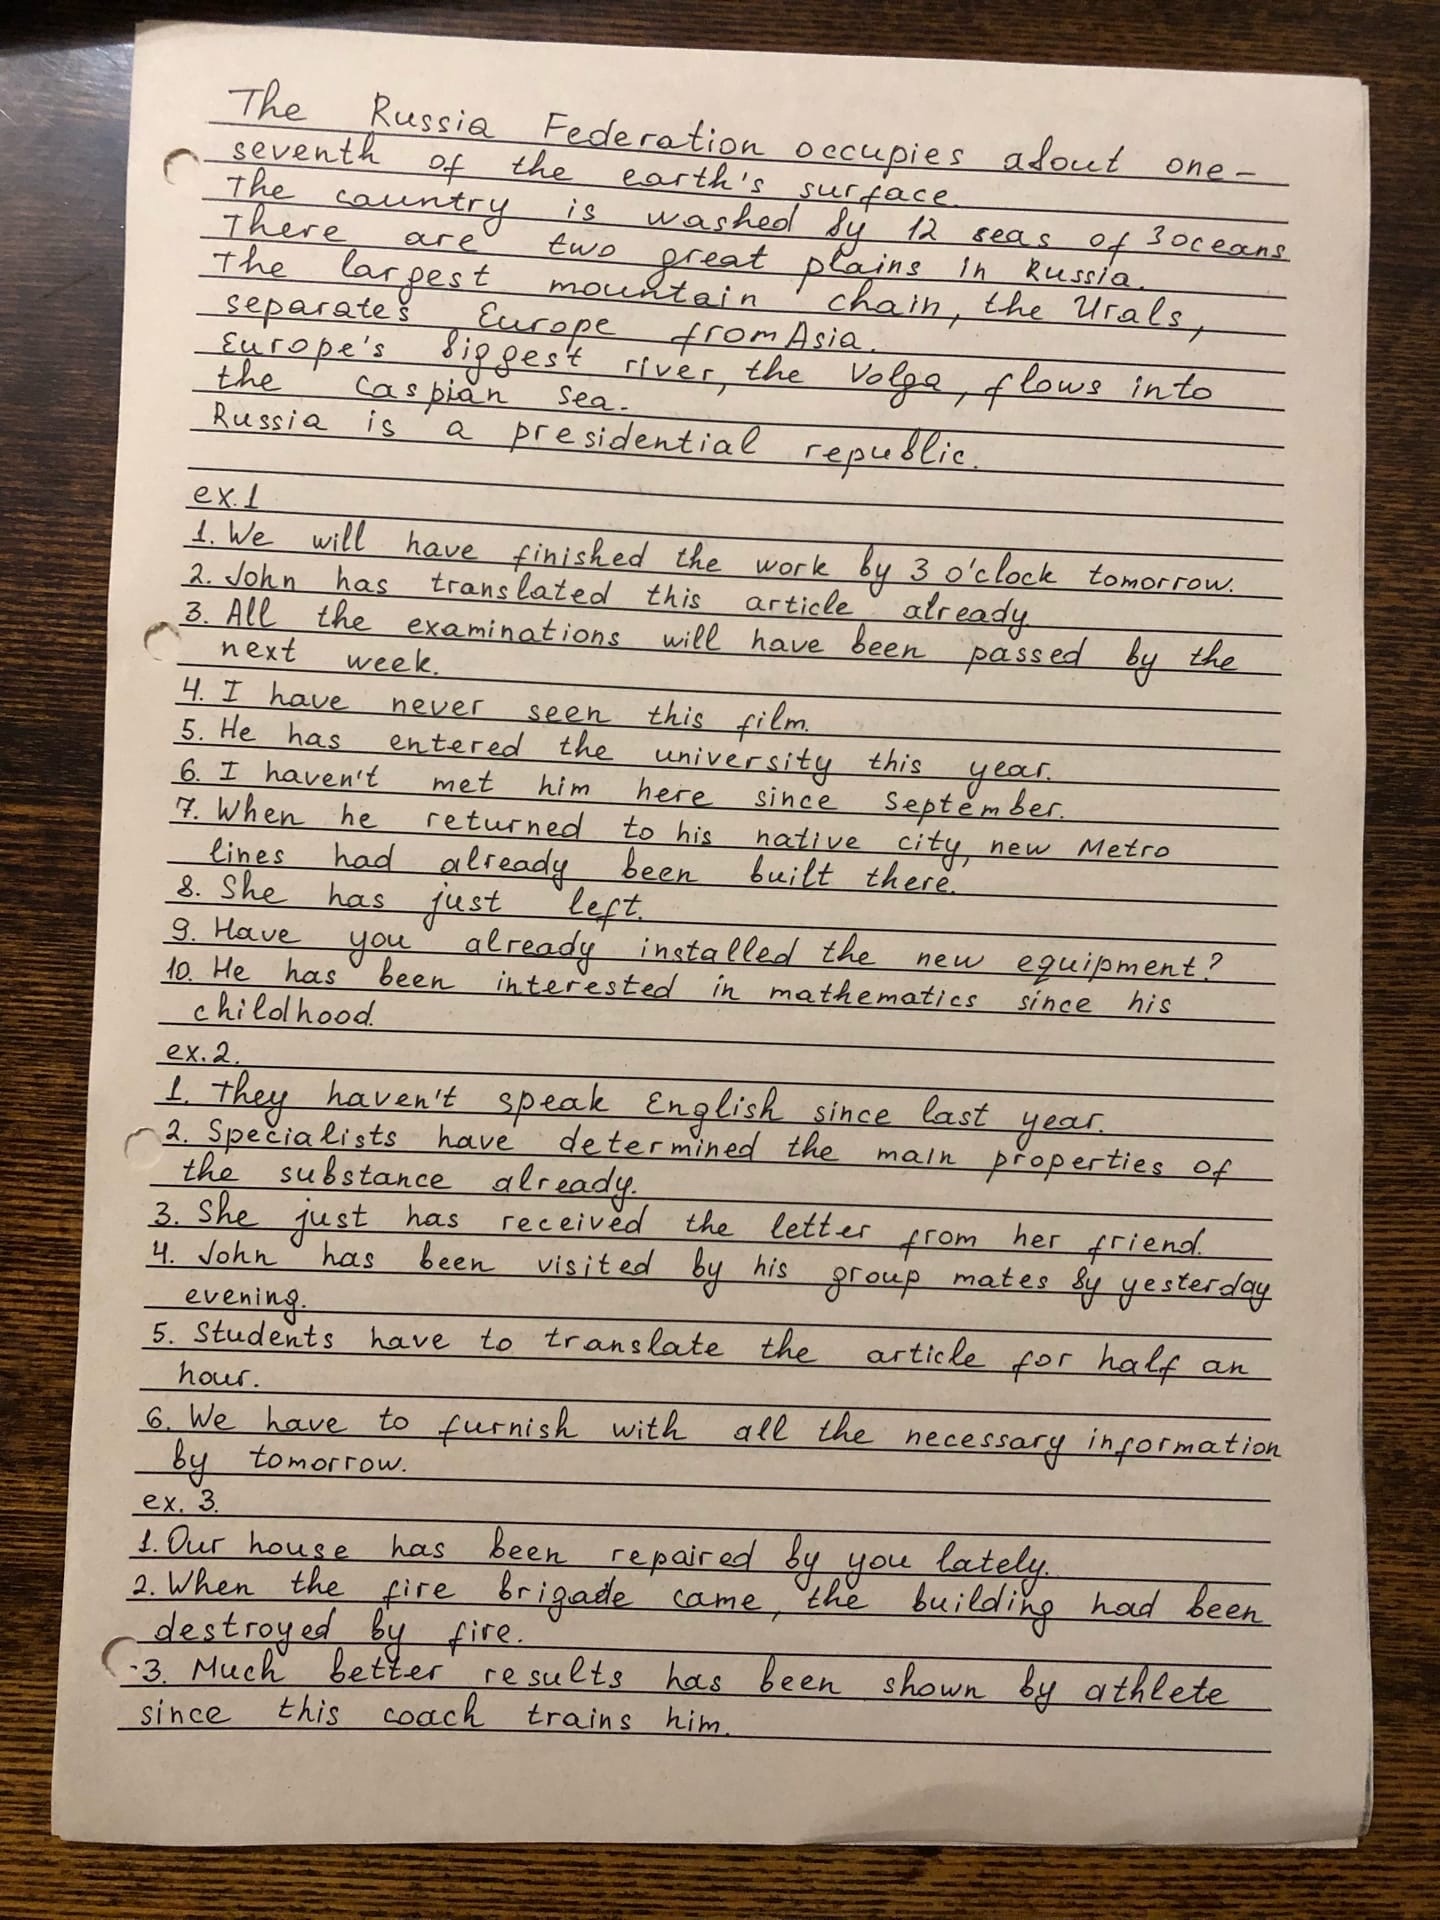 The Russia Federation occupies about one-
seventh of the earth's surface.
The country is washed by 12 seas of 3 oceans
There are two great plains in Russia.
The largest mountain chain, the Urals,
separates Europe from Asia.
Europe's biggest river, the Volga, flows into
the Caspian sea.
Russia is a presidential republic.
ex.1
1. We will have finished the work by 3 o'clock tomorrow.
2. John has translated this article already
3. All the examinations will have been passed by the
next week.
4. I have never seen this film.
5. He has entered the university this year.
6. I haven't met him here since September.
7. When he returned to his native city, new Metro
lines had already been built there.
8. She has just left.
9. Have you already installed the new equipment?
10. He has been interested in mathematics since his
childhood.
ex.2.
1. They haven't speak English since last year.
2. Specialists have determined the main properties of
the substance already.
3. She just has received the letter from her friend.
4. John has been visited by his group mates by yesterday
evening.
5. Students have to translate the article for half an
hour.
6. We have to furnish with all the necessary information
by tomorrow.
ex. 3.
1. Our house has been repaired by you lately.
2. When the fire brigade came, the building had been
destroyed by fire.
3. Much better results has been shown by athlete
since this coach trains him.